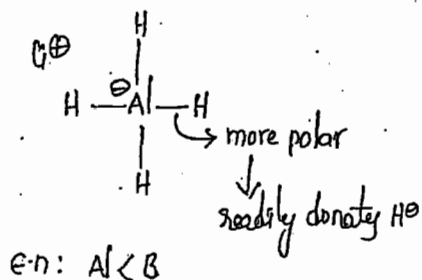 H
G⊕
H — Al⊖ — H
more polar
H
readily donaty H⊖
e·n: Al < B